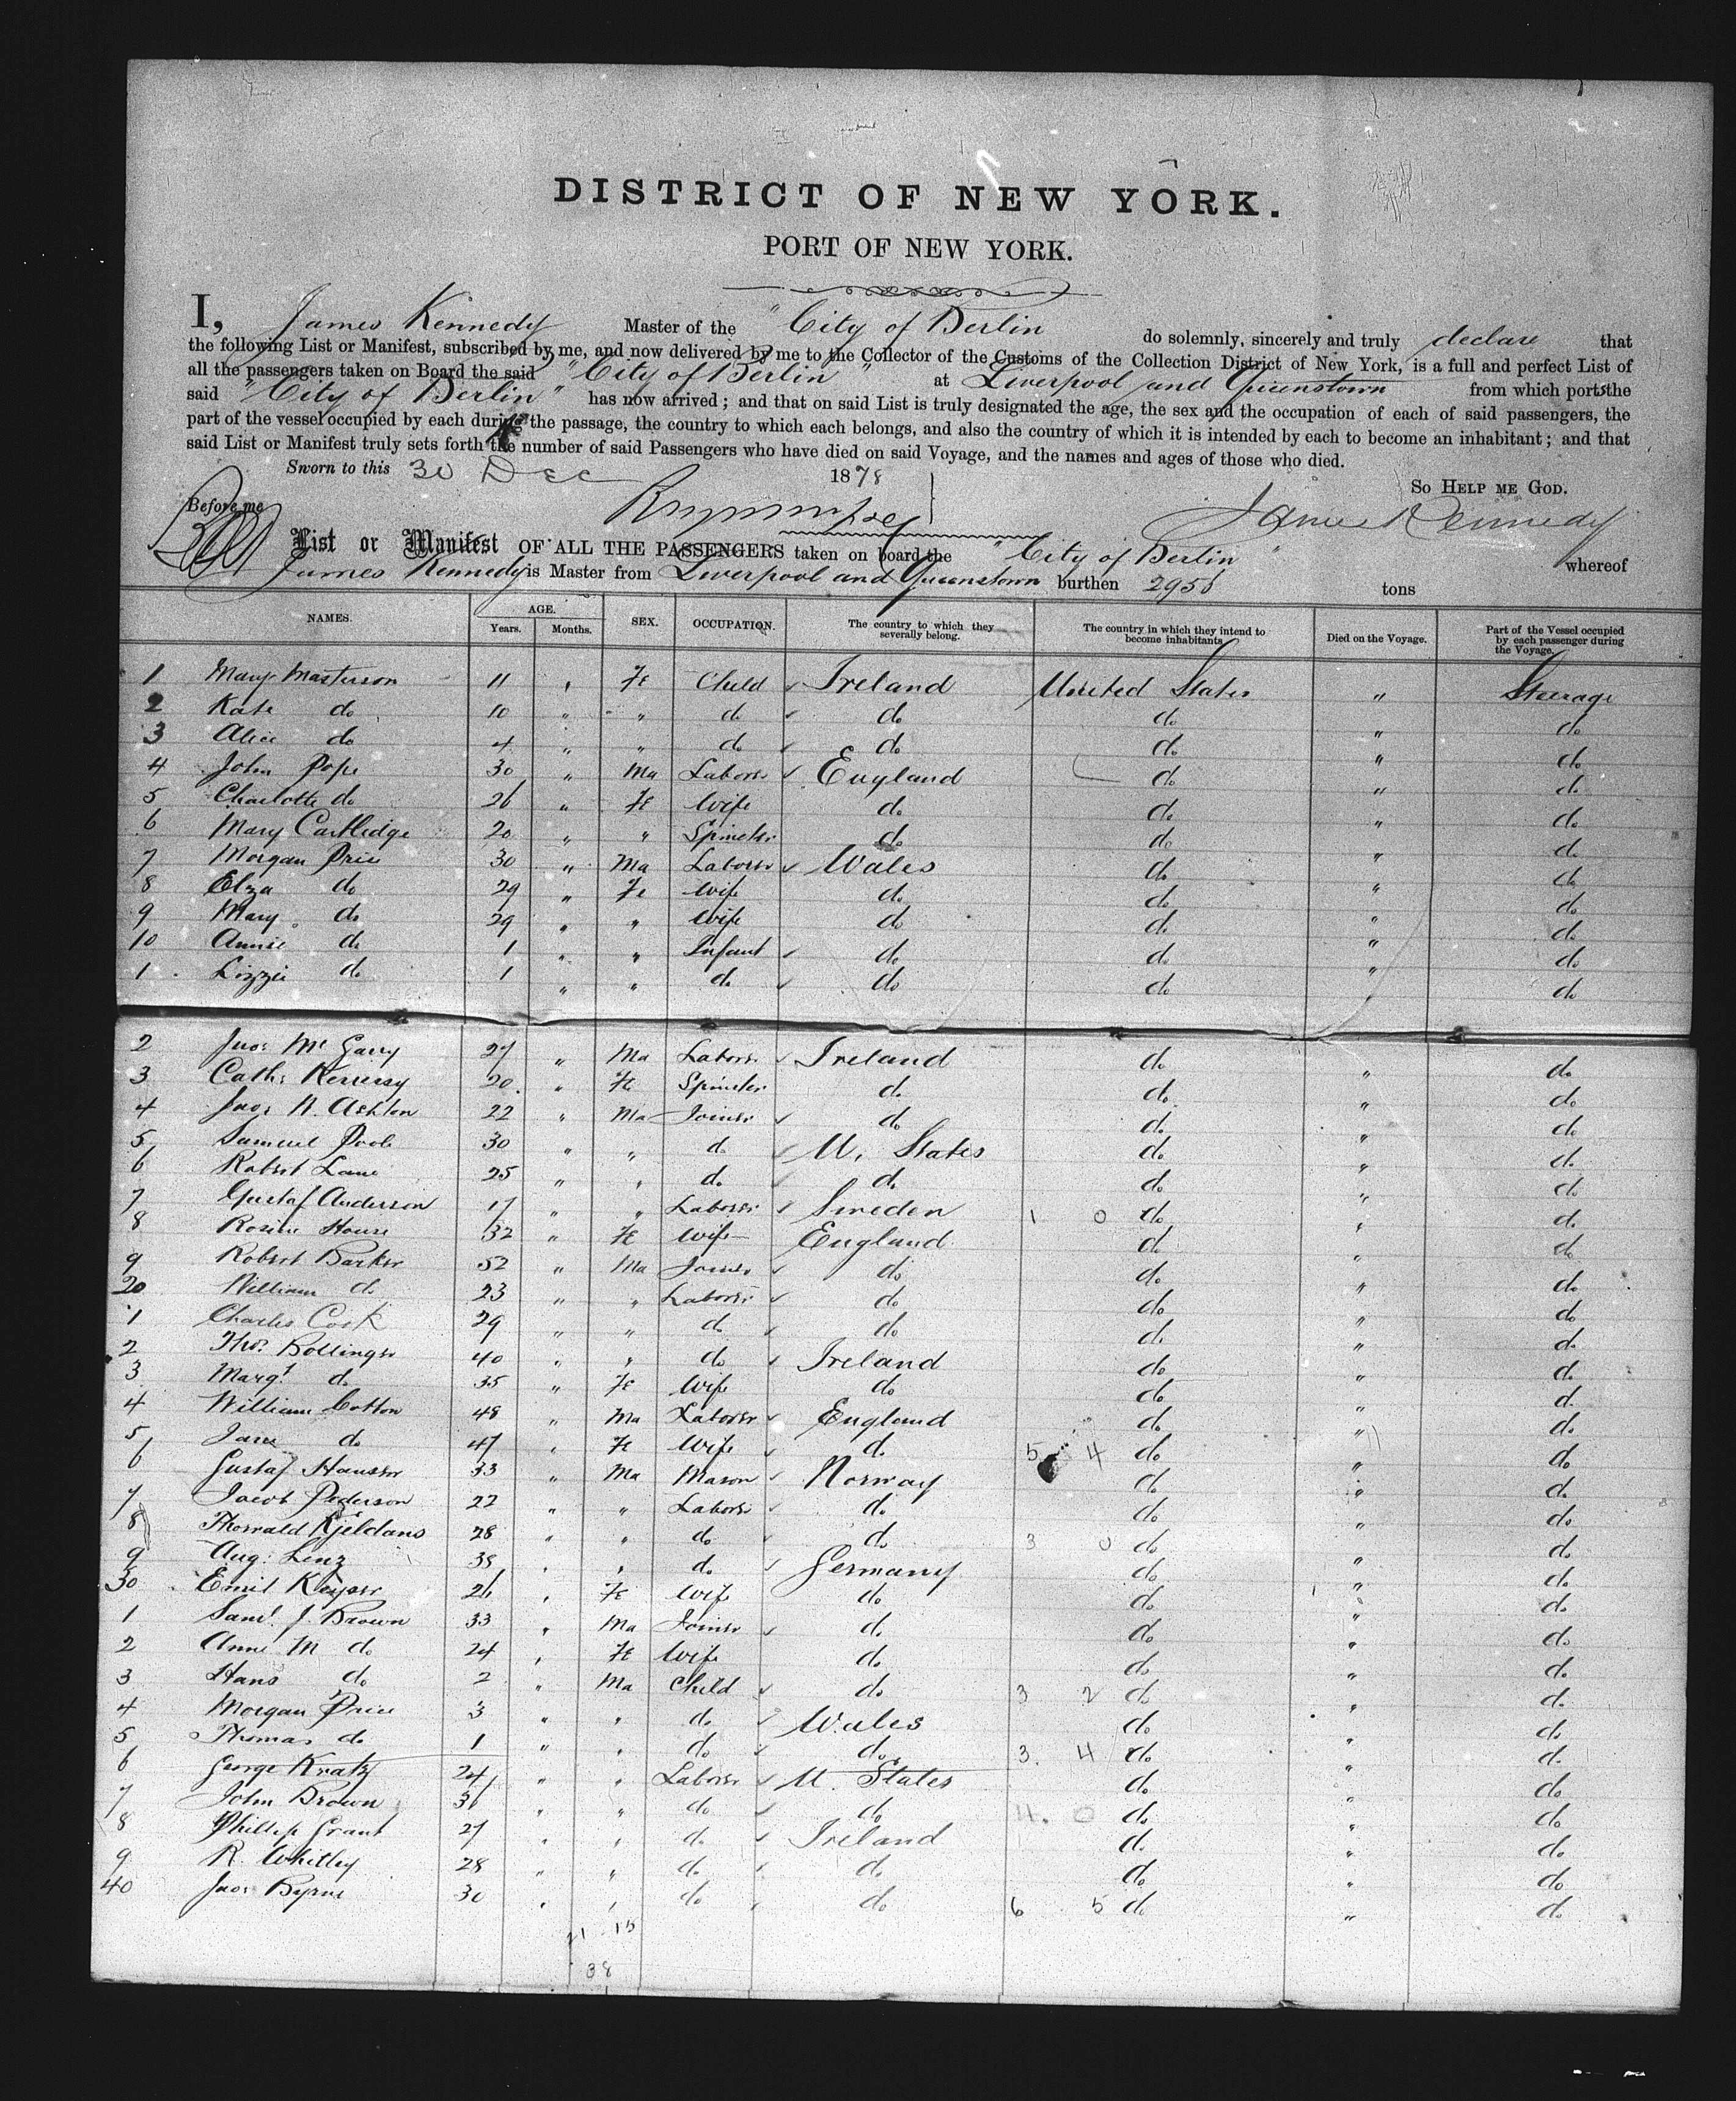 DISTRICT OF NEW YORK.
PORT OF NEW YORK.
I, James Kennedy Master of the "City of Berlin do solemnly, sincerely and truly declare that
the following List or Manifest, subscribed by me, and now delivered by me to the Collector of the Customs of the Collection District of New York, is a full and perfect List of
all the passengers taken on Board the said "City of Berlin" at Liverpool and Queenstown from which ports the
said "City of Berlin" has now arrived; and that on said List is truly designated the age, the sex and the occupation of each of said passengers, the
part of the vessel occupied by each during the passage, the country to which each belongs, and also the country of which it is intended by each to become an inhabitant; and that
said List or Manifest truly sets forth the number of said Passengers who have died on said Voyage, and the names and ages of those who died.
Sworn to this 30 Dec 1878
So HELP ME GOD.
Before me James Kennedy
List or Manifest OF ALL THE PASSENGERS taken on board the "City of Berlin" whereof
James Kennedy is Master from Liverpool and Queenstown burthen 2956 tons
NAMES. AGE. Years. Months. SEX. OCCUPATION. The country to which they severally belong. The country in which they intend to become inhabitants Died on the Voyage. Part of the Vessel occupied by each passenger during the Voyage.
1 Mary Masterson 11 " Fe Child Ireland United States " Steerage
2 Kate do 10 " " do do do " do
3 Alice do 4 " " do do do " do
4 John Pope 30 " Ma Laborer England do " do
5 Charlotte do 26 " Fe Wife do do " do
6 Mary Cartledge 20 " " Spinster do do " do
7 Morgan Price 30 " Ma Laborer Wales do " do
8 Elza do 29 " Fe Wife do do " do
9 Mary do 29 " " Wife do do " do
10 Annie do 1 " " Infant do do " do
1 Lizzie do 1 " " do do do do
2 Jno. Mc Garry 27 " Ma Laborer Ireland do " do
3 Cath. 20 " Fe Spinster do do " do
4 Jno. H. Ashton 22 " Ma Joiner do do " do
5 Samuel Poole 30 " " do U. States do " do
6 Robert Lane 25 " " do do do " do
7 Gustaf Anderson 17 " " Laborer Sweden 1 0 do " do
8 Rosina House 32 " Fe Wife England do " do
9 Robert Barker 52 " Ma Joiner do do " do
20 William do 23 " " Laborer do do " do
1 Charles Cook 29 " " do do do " do
2 Thos. Bollinger 40 " " do Ireland do " do
3 Margt. do 35 " Fe Wife do do " do
4 William Cotton 48 " Ma Laborer England do " do
5 Jane do 47 " Fe Wife do 5 4 do " do
6 Gustaf Hansen 33 " Ma Mason Norway do " do
7 Jacob Pederson 22 " " Laborer do do " do
8 Thorvald Kjeldans 28 " " do do 3 0 do " do
9 Aug. Lenz 38 " " do Germany do " do
30 Emil Keyser 26 " Fe Wife do do " do
1 Saml. J. Brown 33 " Ma Joiner do do " do
2 Anne M do 24 " Fe Wife do do " do
3 Hans do 2 " Ma Child do 3 2 do " do
4 Morgan Price 3 " " do Wales do " do
5 Thomas do 1 " " do do 3 4 do " do
6 George Kratz 24 " " Laborer U. States do " do
7 John Brown 36 " " do do 4. 0 do " do
8 Phillip Grant 27 " " do Ireland do " do
9 R. Whitley 28 " " do do do " do
40 Jno. Byrne 30 " " do do 6 5 do " do
15
38